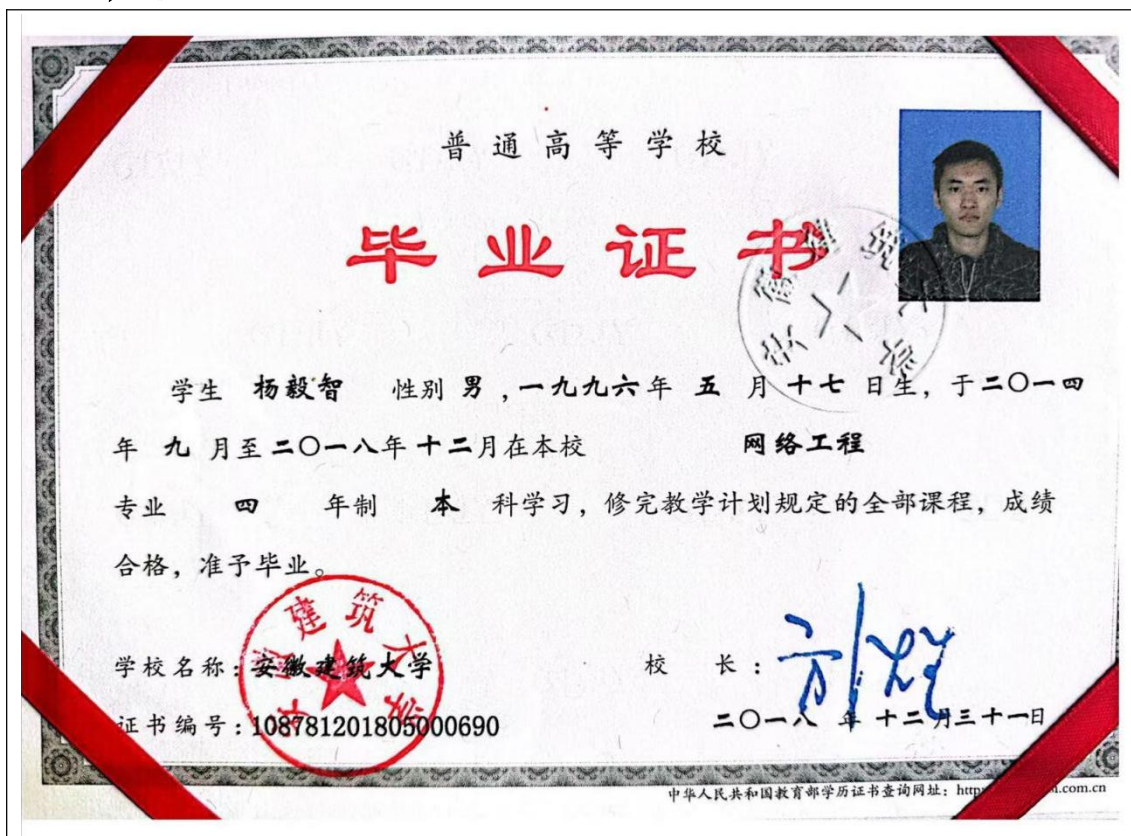 普通高等学校
毕业证书
安徽建筑大学
学生 杨毅智 性别 男 ，一九九六年 五 月 十七 日生，于二〇一四
年 九 月至二〇一八年十二月在本校 网络工程
专业 四 年制 本 科学习，修完教学计划规定的全部课程，成绩
合格，准予毕业。
学校名称：安徽建筑大学
校 长：
证书编号：108781201805000690
二〇一八 年 十二月三十一日
中华人民共和国教育部学历证书查询网址：http
.com.cn